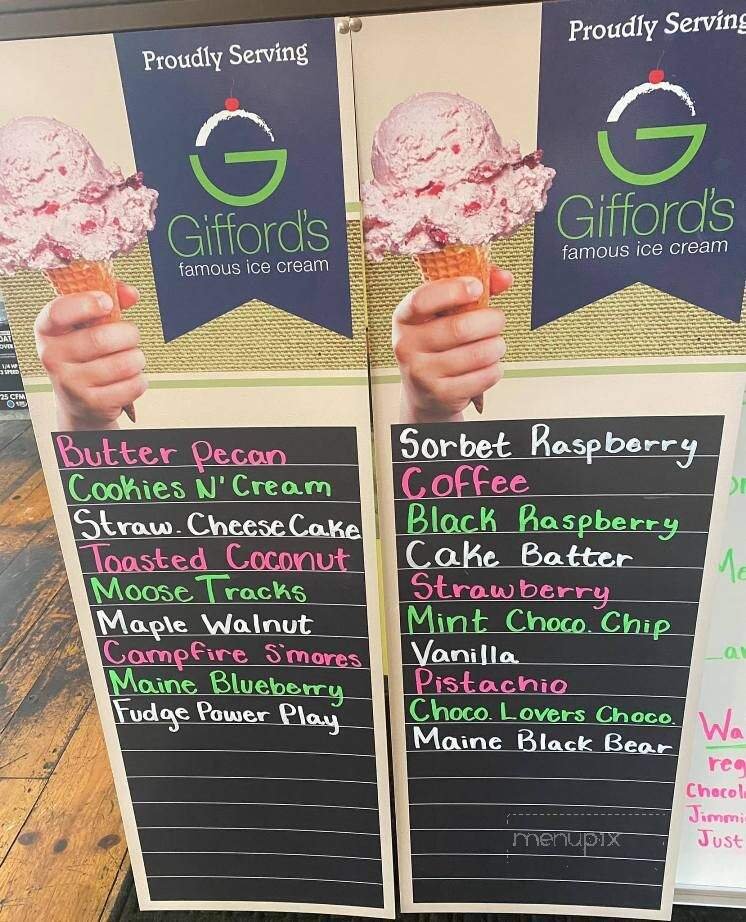 Proudly Serving
Gifford's
famous ice cream
Butter Pecan
Cookies N' Cream
Straw. Cheese Cake
Toasted Coconut
Moose Tracks
Maple Walnut
Campfire S'mores
Maine Blueberry
Fudge Power Play
Proudly Serving
Gifford's
famous ice cream
Sorbet Raspberry
Coffee
Black Raspberry
Cake Batter
Strawberry
Mint Choco. Chip
Vanilla
Pistachio
Choco. Lovers Choco.
Maine Black Bear
menupix
25 CFM
Wa
reg
Chocol
Jimmi
Just